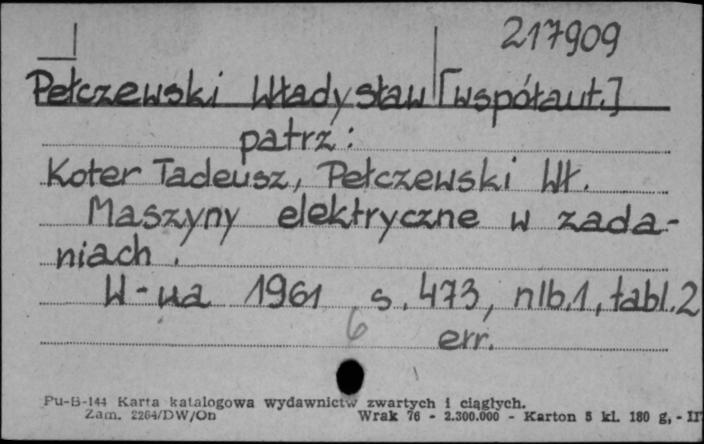 217909
Pełczewski Władysław [współaut.]
patrz:
Koter Tadeusz, Pełczewski Wł.
Maszyny elektryczne w zada-
niach.
W-wa 1961 s. 473, nlb.1, tabl.2
6 err.
Pu-B-144 Karta katalogowa wydawnictw zwartych i ciągłych.
Zam. 2264/DW/On Wrak 76 - 2.300.000 - Karton 5 kl. 180 g, - II